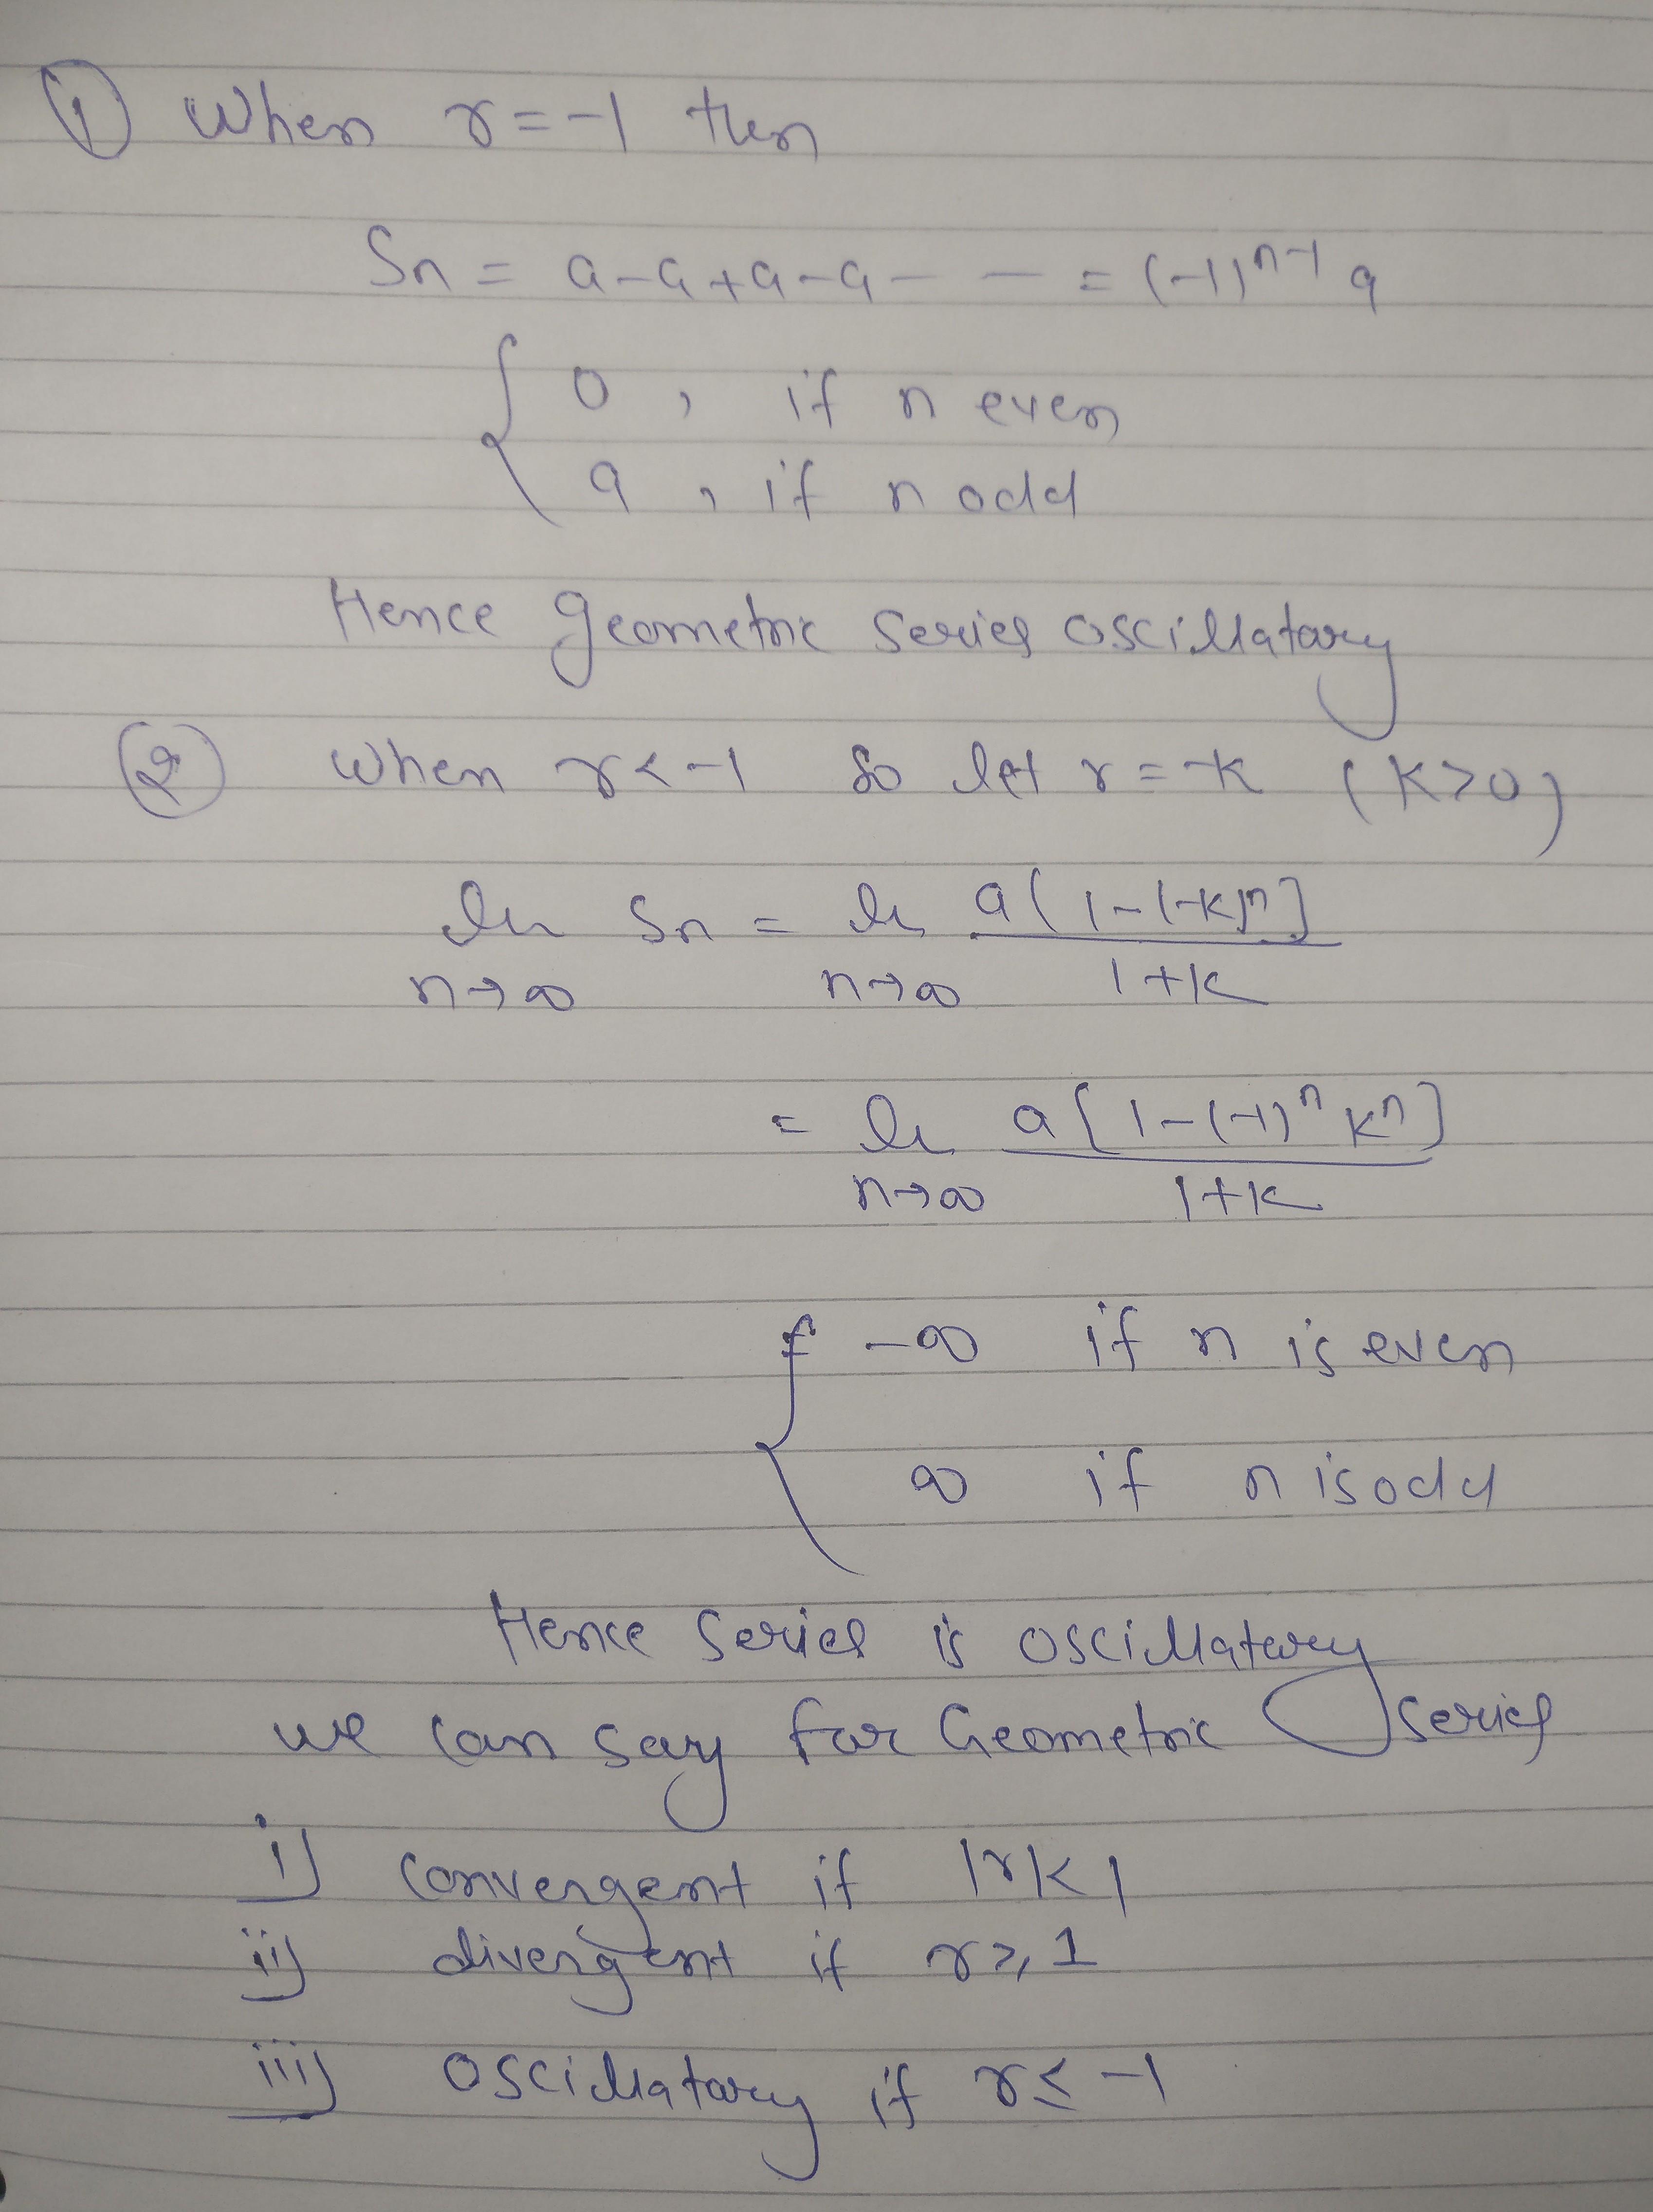 ① When r = -1 then
Sn = a-a+a-a- - - = (-1)^{n-1} a
{ 0 , if n even
a , if n odd
Hence geometric series oscillatary
② When r < -1 so let r = -k (k>0)
lim Sn = lim a(1-(-k)^n]
n→∞ n→∞ 1+k
= lim a[1-(-1)^n k^n]
n→∞ 1+k
{ -∞ if n is even
∞ if n is odd
Hence series is oscillatary
we can say for Geometric series
i) convergent if |r|<1
ii) divergent if r ≥ 1
iii) oscillatary if r ≤ -1